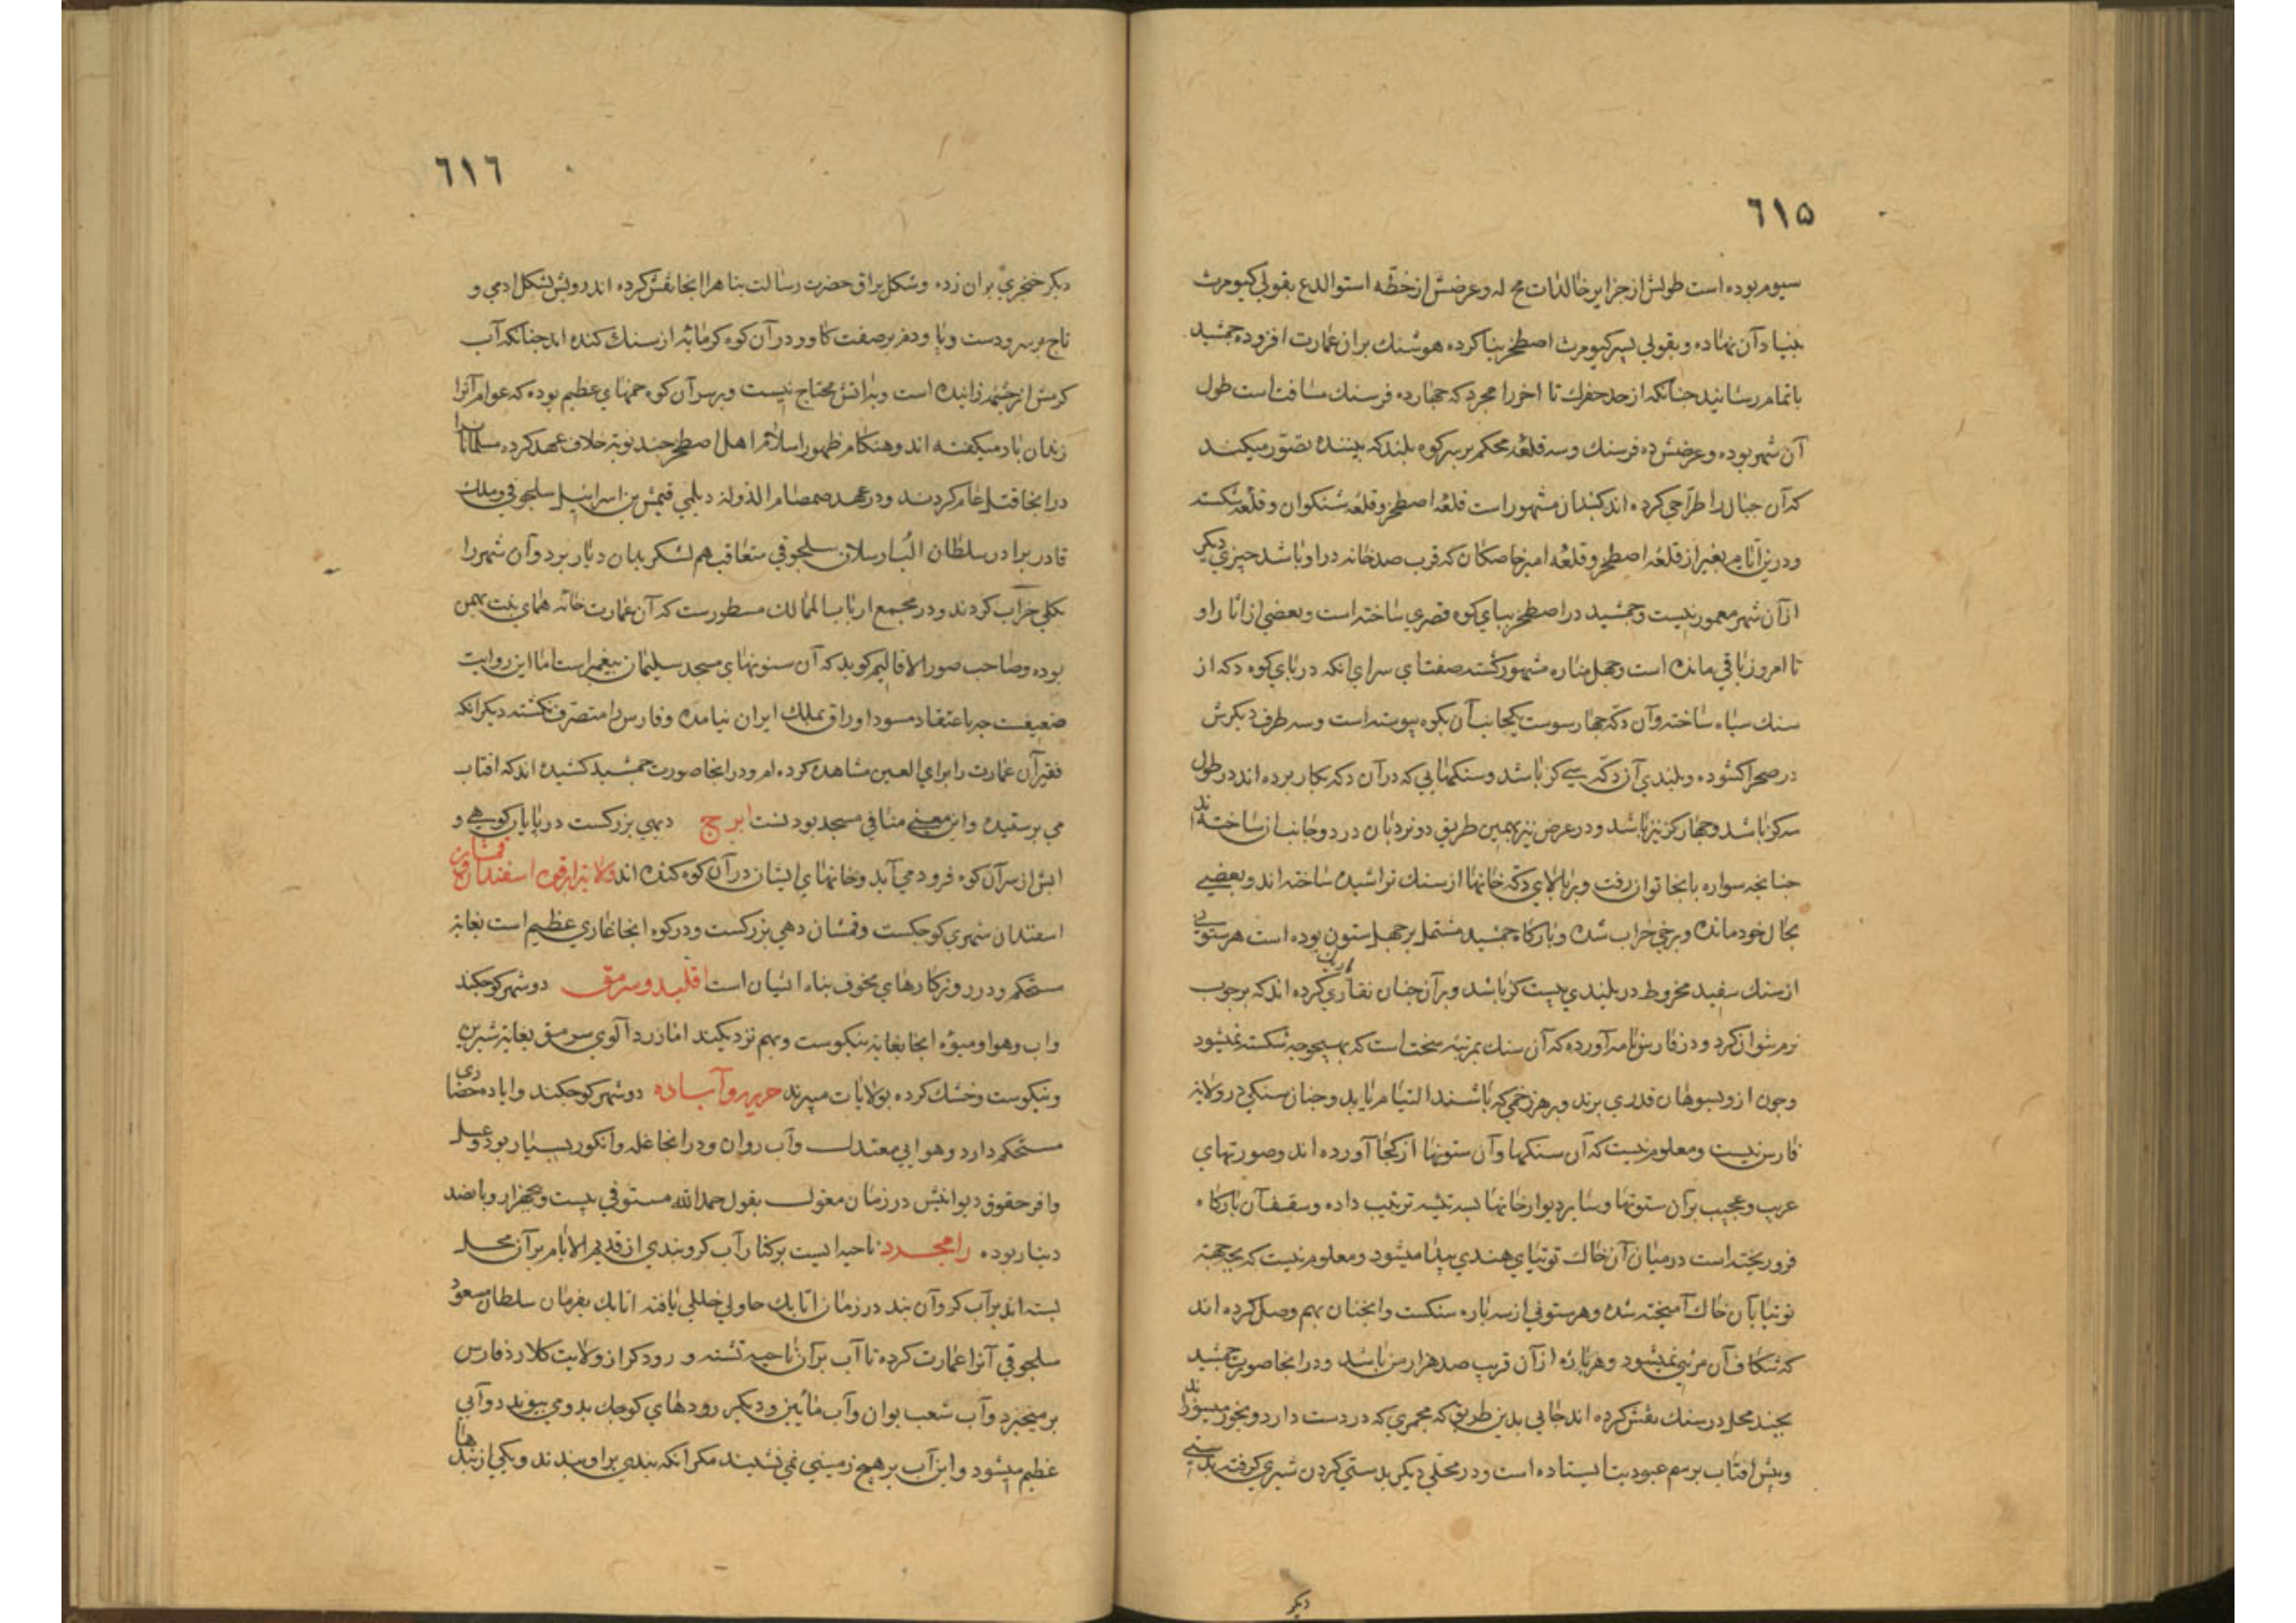 ٦١٥
سیوم بوده است طولش از جزایر خالدات مح له وعرضش از خطّه استوا لدع بقولی کیومرث
بنیاد آن نهاده و بقولی پسر کیومرث اصطخر بنا کرده هوشنك بران عمارت افزوده جمشید
باتمام رسانید جنانکه از حد حفرك تا اخر رامجرد که جهارده فرسنك مسافت است طول
آن شهر بوده و عرضش ده فرسنك وسه قلعه محکم بر سر کوه بلند که بیننده تصوّر میکند
که آن جبال را طرّاحی کرده اند کبندان مشهور است قلعه اصطخر و قلعه شنکوان و قلعه شکسته
و درین ایّام بغیر از قلعه اصطخر و قلعه امیر خاصکان که قرب صد خانه در او باشد جیزی دیکر
از آن شهر معمور نیست و جمشید در اصطخر ببای کوه قصری ساخته است و بعضی از اثار او
تا امروز باقی مانده است و جهل مناره مشهور کشته صفتای سرای انکه در بای کوه دکه از
سنك سیاه ساخته و آن دکه جهار سوست یکجانب آن بکوه پیوسته است وسه طرف دیکرش
در صحرا کشوده و بلندی آن دکّه سی کز باشد و سنکهایی که در آن دکه بکار برده اند در طول
سه کز باشد و جهار کز نیز باشد و در عرض نیز بهمین طریق دو نردبان در دو جانب از ساخته اند
جنانجه سواره بانجا توان رفت و بر بالای دکّه خانها از سنك تراشیده ساخته اند و بعضی
بحال خود مانده و برخی خراب شده و بارکاه جمشید مشتمل بر جهل ستون بوده است هر ستونی
از سنك سفید مخروط در بلندی بیست کز باشد و بر آن جنان نقاری کرده اند که بر جوب
نرم نتوان کرد و در فارس نامه آورده که آن سنك بمرتبه سخت است که بهیجوجه شکسته نمیشود
وجون از و بسوهان قدری برند و بر هر زخمی که باشند التیام یابد و جنان سنکی در ولایه
فارس نیست و معلوم نیست که آن سنکها و آن ستونها از کجا آورده اند و صورتهای
غریب و عجیب بر آن ستونها و سایر دیوار خانها بسه تیشه ترتیب داده و سقف آن بارکاه
فرو ریخته است در میان آن خاك توتیای هندی پیدا میشود و معلوم نیست که بجه جهة
توتیا بآن خاك آمیخته شده و هر ستونی از سه باره سنکست و انجنان بهم وصل کرده اند
که شکاف آن مرئی نمیشود و هر باره از آن قریب صد هزار من باشد و در انجا صورت جمشید
بجند محل در سنك نقش کرده اند جایی بدین طریق که مجمری که در دست دارد و بخور میسوزاند
و پیش افتاب برسم عبودیت ایستاده است و در محلی دیکر بدستی کردن شیری کرفته بدستی
دیکر
٦١٦
دیکر خنجری بران زده و شکل براق حضرت رسالت بناهرا انجا نقش کرده اند رویش بشکل ادمی و
تاج بر سر و دست و پا و دم بر صفت کاو و در آن کوه کرمابه از سنك کنده اند جنانکه آب
کرمش از جشمه زاینده است و باتش محتاج نیست و بر سر آن کوه دخمهای عظیم بوده که عوام آنرا
زندان باد میکفته اند و هنکام ظهور اسلام اهل اصطخر جند نوبه خلاف عهد کرده مسلمانانرا
در انجا قتل عام کردند و در عهد صمصام الدوله دیلمی قتلمش بن اسرائیل سلجوقی و ملك
قادر برادر سلطان الب ارسلان سلجوقی متعاقب هم لشکر بدان دیار برد و آن شهر را
بکلی خراب کردند و در مجمع ارباب الممالك مسطورست که آن عمارت خانه همای بنت بهمن
بوده و صاحب صور الاقالیم کوید که آن ستونهای مسجد سلیمان پیغمبر است اما این روایت
ضعیفست جه باعتقاد مسود اوراق بملك ایران نیامده و فارس را متصرف نکشته دیکر انکه
فقیر آن عمارت را برای العین مشاهده کرده ام و در انجا صورت جمشید کشیده اند که افتاب
می پرستیده و این معنی منافی مسجد بودنست ابرج دیهی بزرکست در پایان کوهی و
ابش از سر آن کوه فرود می آید و خانهای ایشان در آن کوه کنده اند ولایة ابرقوه اسفندان و قمشان
اسفندان شهری کوجکست و قمشان دهی بزرکست و در کوه انجا غاری عظیم است بغایة
مستحکم و در روزکارهای مخوف بناه ایشان است اقلید و سرمق دو شهر کوجکند
و اب و هوا و میوه انجا بغایة نیکوست و بهم نزدیکند اما زردالوی سرمق بغایة شیرین
و نیکوست و خشك کرده بولایات میبرند حریر و آباده دو شهر کوجکند و اباده حصاری
مستحکم دارد و هوایی معتدل و آب روان و در انجا غله و انکور بسیار بود و
وافر حقوق دیوانیش در زمان مغول بقول حمد الله مستوفی بیست و بنجهزار و پانصد
دینار بوده رامجرد ناحیه ایست بر کنار آب کر و بندی از قدیم الایام بر آن محل
بسته اند بر آب کر و آن بند در زمان اتابك جاولی خللی یافته اتابك بفرمان سلطان مسعود
سلجوقی آنرا عمارت کرده تا آب بر آن ناحیه نشسته و رود کر از ولایت کلار فارس
بر میخیزد و آب شعب بوان و آب مائین و دیکر رودهای کوجك بدو می پیوندد و آبی
عظیم میشود و این آب بر هیج زمینی نمی نشیند مکر انکه بندی بر او ببندند و یکی از بندها